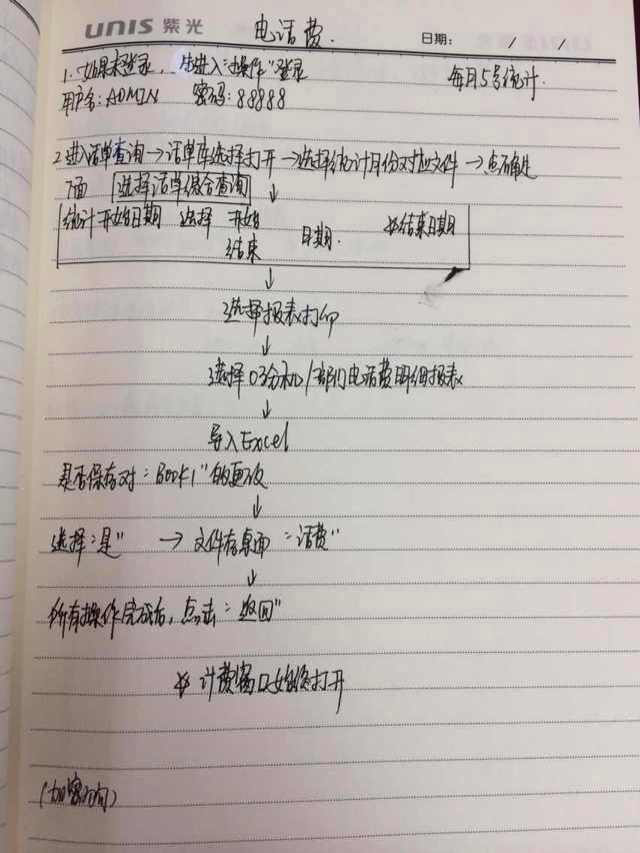 UNIS 紫光
电话费.
日期: / /
1. 如果未登录, 先进入"操作"登录
每月5号统计.
用户名: ADMIN 密码: 88888
2 进入话单查询→话单库选择打开→选择统计月份对应文件→点确定
下面 选择话单综合查询 ↓
统计开始日期 选择 开始 日期. ※结束日期
结束
↓
选择报表打印
↓
选择03分机/部门电话费明细报表
↓
导入Excel
是否保存对"Book1"的更改
↓
选择"是" → 文件存桌面"话费"
↓
所有操作完成后, 点击"返回"
※ 计费窗口始终打开